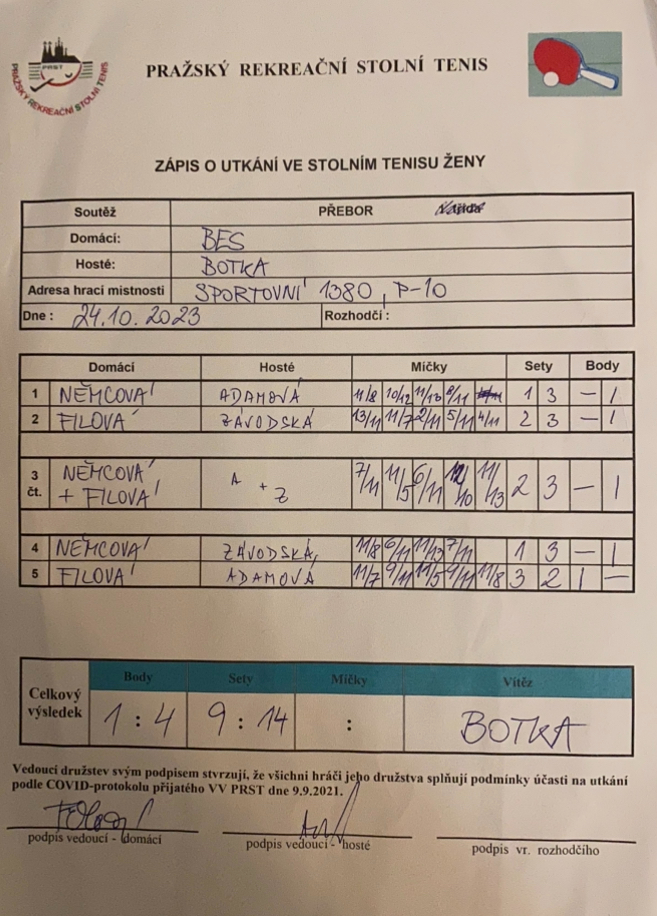 PRST
PRAŽSKÝ REKREAČNÍ STOLNÍ TENIS
PRAŽSKÝ REKREAČNÍ STOLNÍ TENIS
ZÁPIS O UTKÁNÍ VE STOLNÍM TENISU ŽENY
Soutěž PŘEBOR
Domácí: BES
Hosté: BOTKA
Adresa hrací místnosti SPORTOVNÍ 1380, P-10
Dne : 24.10. 2023 Rozhodčí :
Domácí Hosté Míčky Sety Body
1 NĚMCOVÁ ADAMOVÁ 11/8 10/12 11/13 8/11 1 3 – 1
2 FILOVÁ ZÁVODSKÁ 13/11 11/7 2/11 5/11 4/11 2 3 – 1
3 čt. NĚMCOVÁ + FILOVÁ A + Z 7/11 11/5 6/11 12/10 11/13 2 3 – 1
4 NĚMCOVÁ ZÁVODSKÁ 11/8 6/11 11/13 7/11 1 3 – 1
5 FILOVÁ ADAMOVÁ 11/7 9/11 11/5 9/11 11/8 3 2 1 –
Body Sety Míčky Vítěz
Celkový výsledek 1 : 4 9 : 14 : BOTKA
Vedoucí družstev svým podpisem stvrzují, že všichni hráči jeho družstva splňují podmínky účasti na utkání
podle COVID-protokolu přijatého VV PRST dne 9.9.2021.
podpis vedoucí - domácí podpis vedoucí - hosté podpis vr. rozhodčího